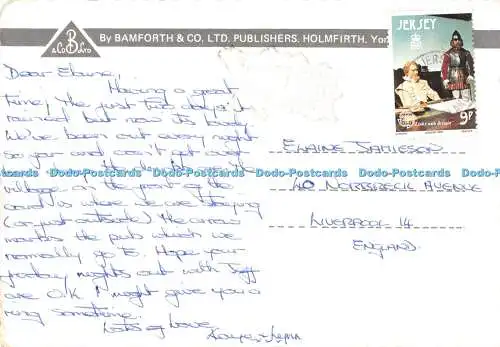 By BAMFORTH & CO. LTD. PUBLISHERS. HOLMFIRTH.
B
& Co LTD
JERSEY
9P
Dear Elaine,
Having a great
time, The just two days it
rained but now its lovely
We've been out every night
so you and can't get over
village at the front of the
card is where we are staying
(or just outside) The arrow
marks the pub which we
normally go to. Hope your
nights out with Jeff
are O.K. I might give you a
ring sometime.
Lots of Love,
ELAINE JAMIESON
40 NORBRECK AVENUE
LIVERPOOL 14
ENGLAND.
Dodo-Postcards Dodo-Postcards Dodo-Postcards Dodo-Postcards